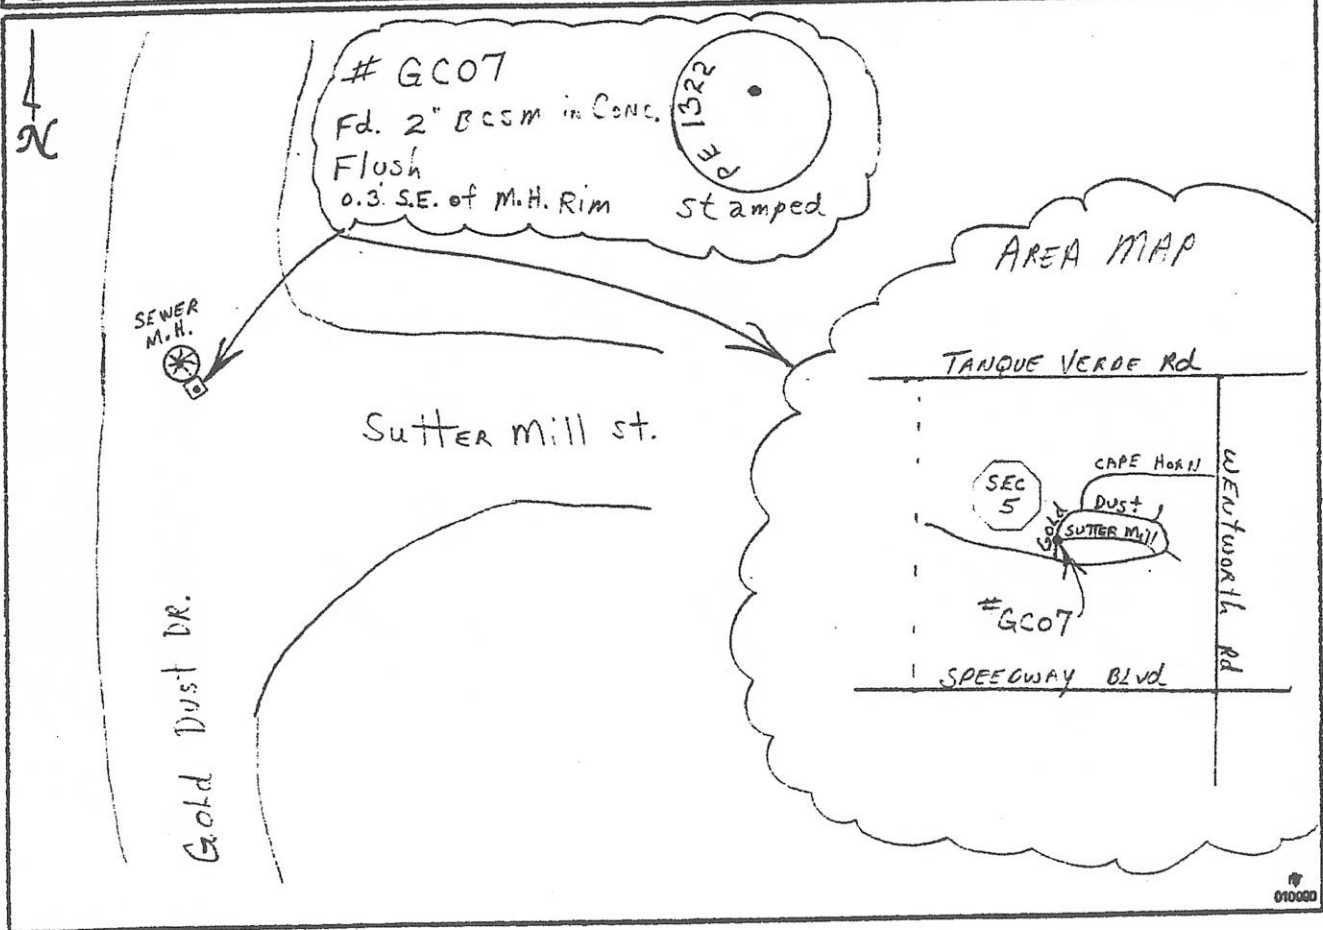 N
# GC07
Fd. 2" BCSM in Conc.
Flush
0.3' S.E. of M.H. Rim
PE 1322
stamped
SEWER
M.H.
Sutter Mill St.
Gold Dust DR.
AREA MAP
TANQUE VERDE Rd
CAPE HORN
SEC
5
Gold
Dust
SUTTER Mill
WENTWORTH Rd
#GC07
SPEEDWAY BLVD